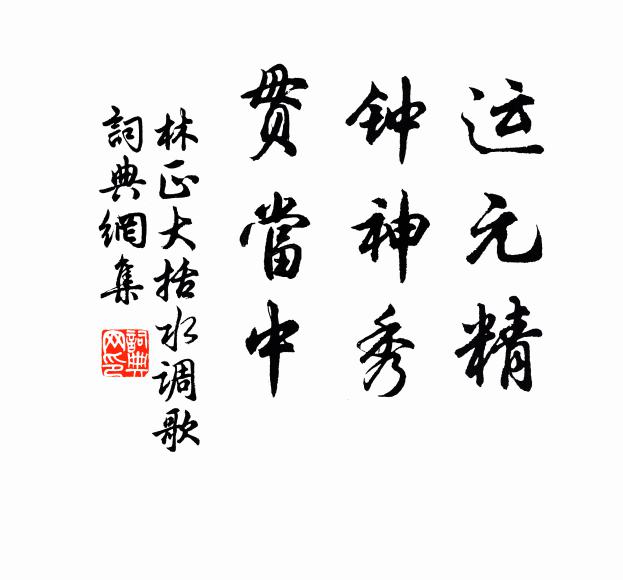 运元精
钟神秀
贯當中
林正大括水调歌
词典網集
词典网印